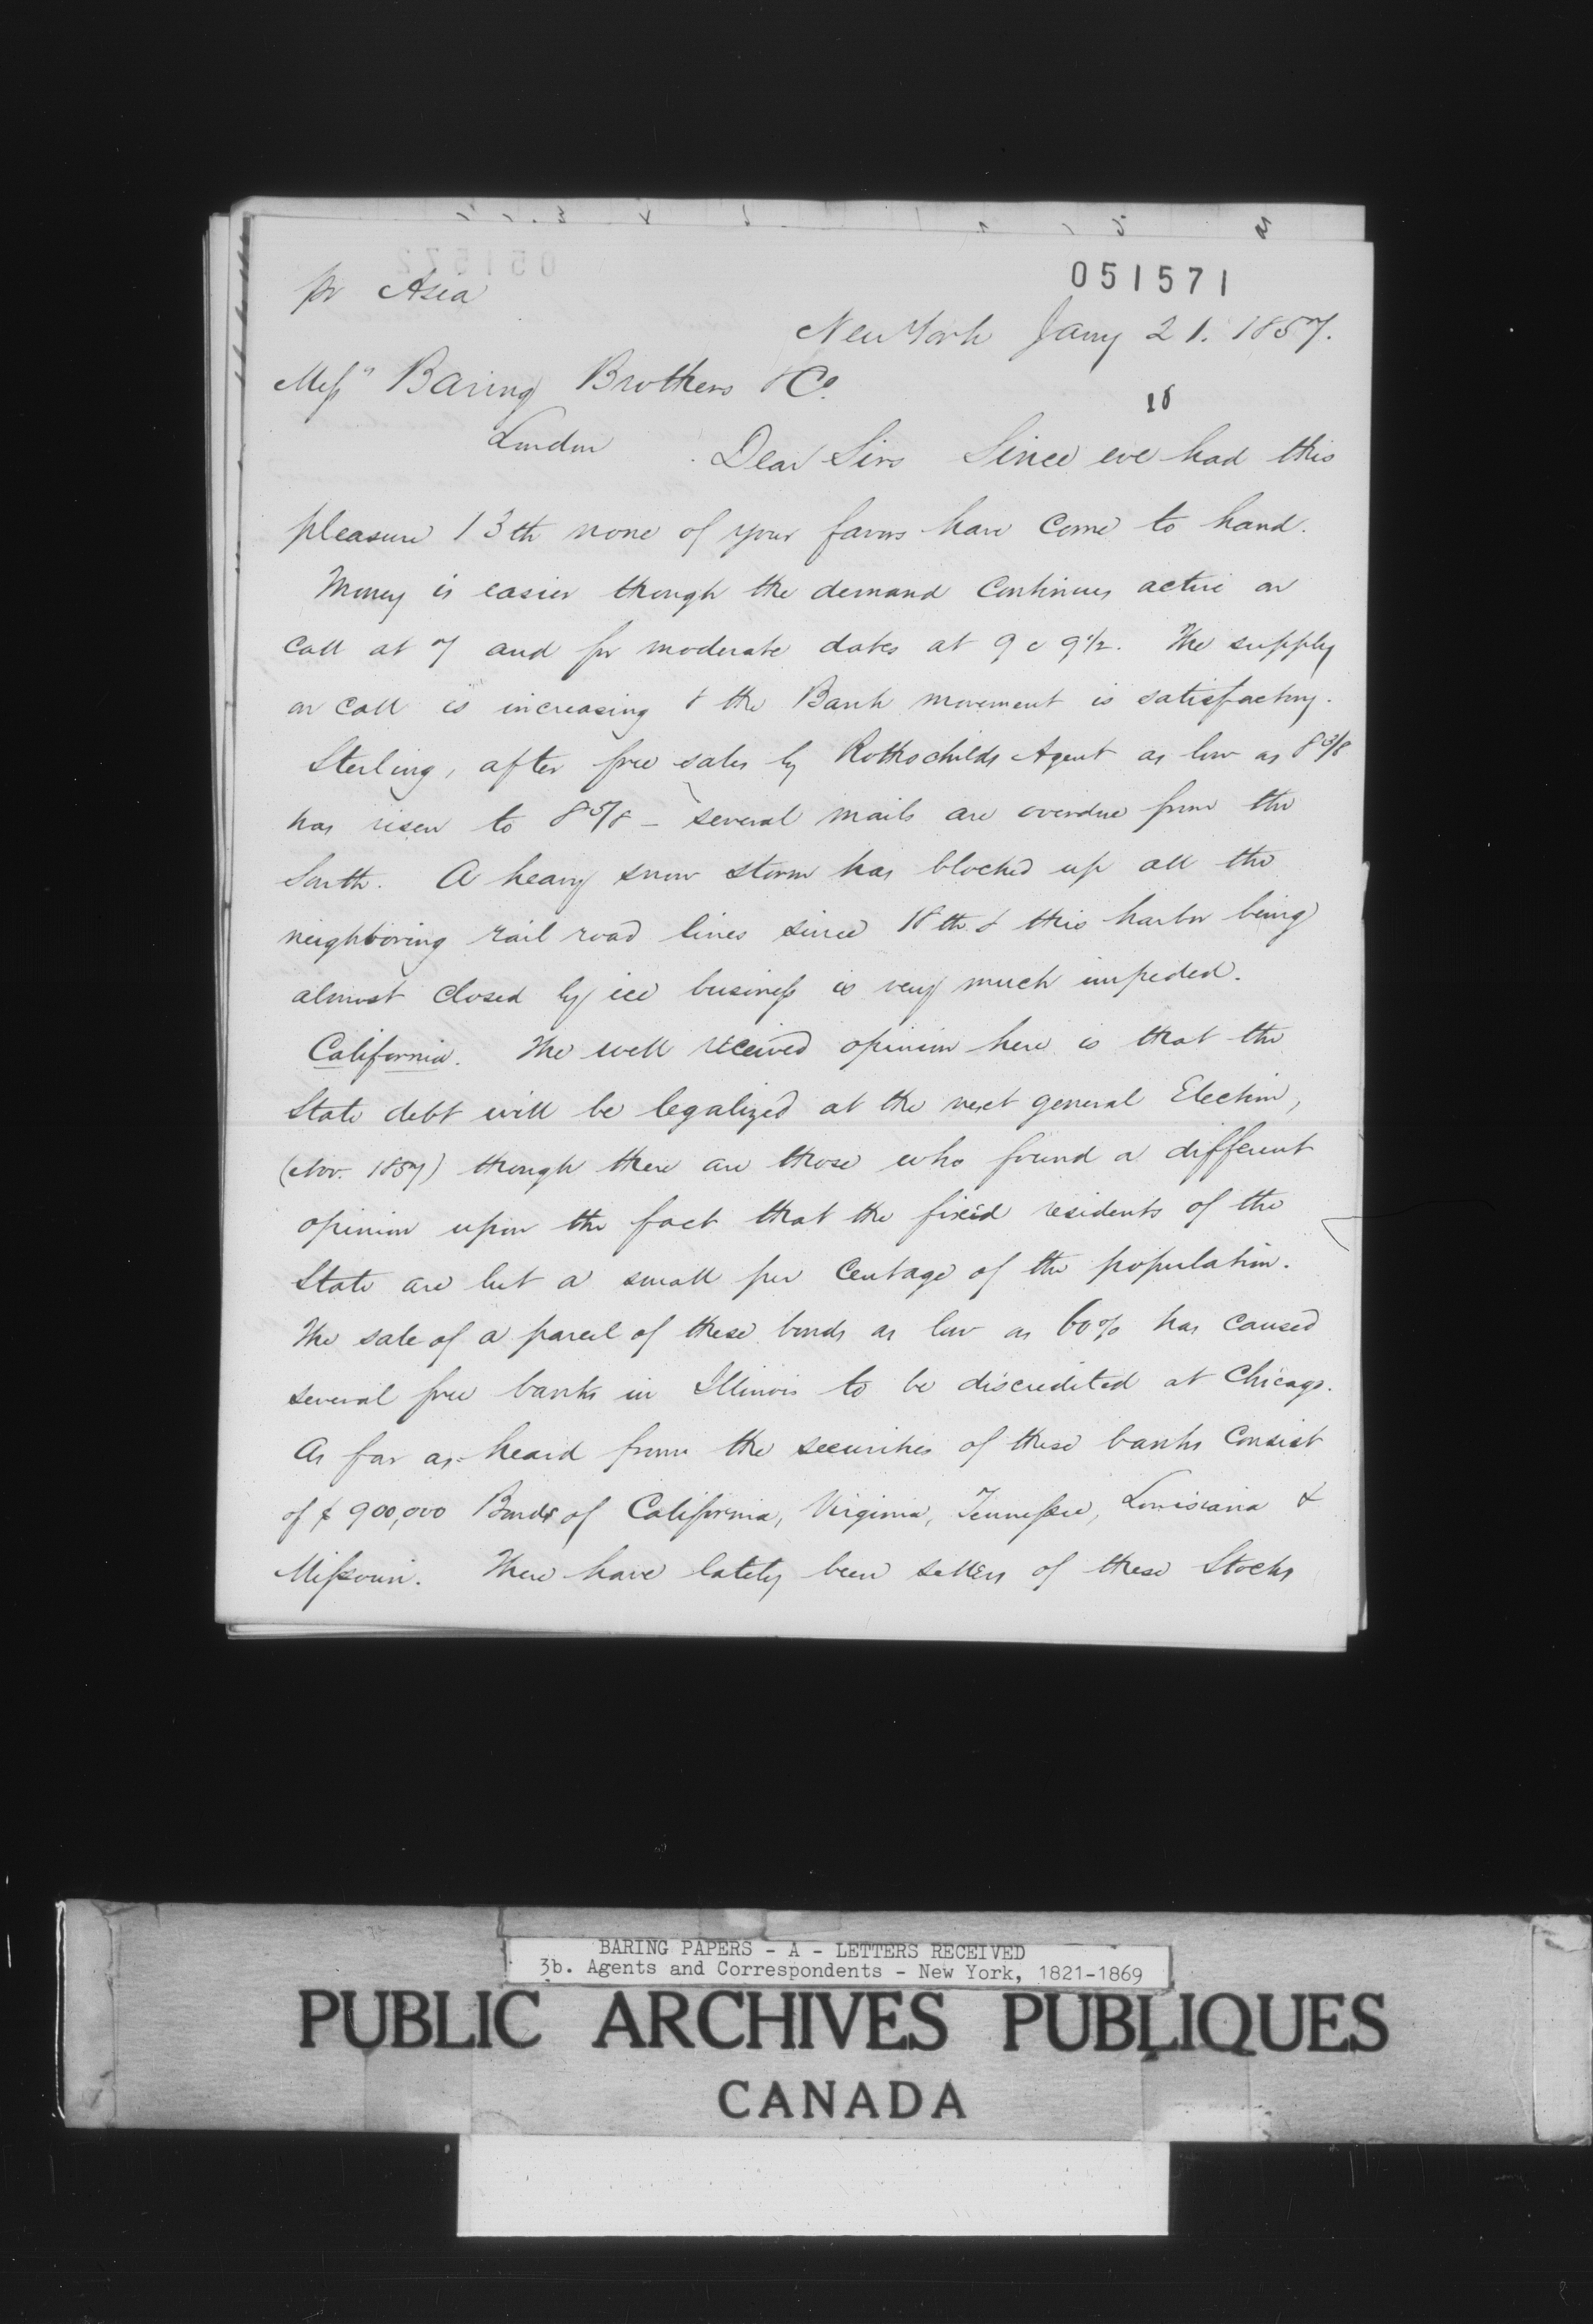 051571
pr Asia
New York Jany 21. 1857.
Messrs Baring Brothers & Co.
18
London
Dear Sirs Since we had this
pleasure 13th none of your favors have come to hand.
Money is easier though the demand continues active on
call at 7 and for moderate dates at 9 c 9 1/2. The supply
on call is increasing & the Bank movement is satisfactory.
Sterling, after free sales by Rothschilds Agent as low as 8 3/8
has risen to 8 5/8 - several mails are overdue from the
South. A heavy snow storm has blocked up all the
neighboring rail road lines since 18th & this harbor being
almost closed by ice business is very much impeded.
California. The well received opinion here is that the
State debt will be legalized at the next general Election,
(Nov. 1857) though there are those who found a different
opinion upon the fact that the fixed residents of the
State are but a small per centage of the population.
The sale of a parcel of these bonds as low as 60% has caused
several free banks in Illinois to be discredited at Chicago.
As far as heard from the securities of these banks consist
of $ 900,000 Bonds of California, Virginia, Tennessee, Louisiana &
Missouri. There have lately been sellers of these Stocks
BARING PAPERS - A - LETTERS RECEIVED
3b. Agents and Correspondents - New York, 1821-1869
PUBLIC ARCHIVES PUBLIQUES
CANADA